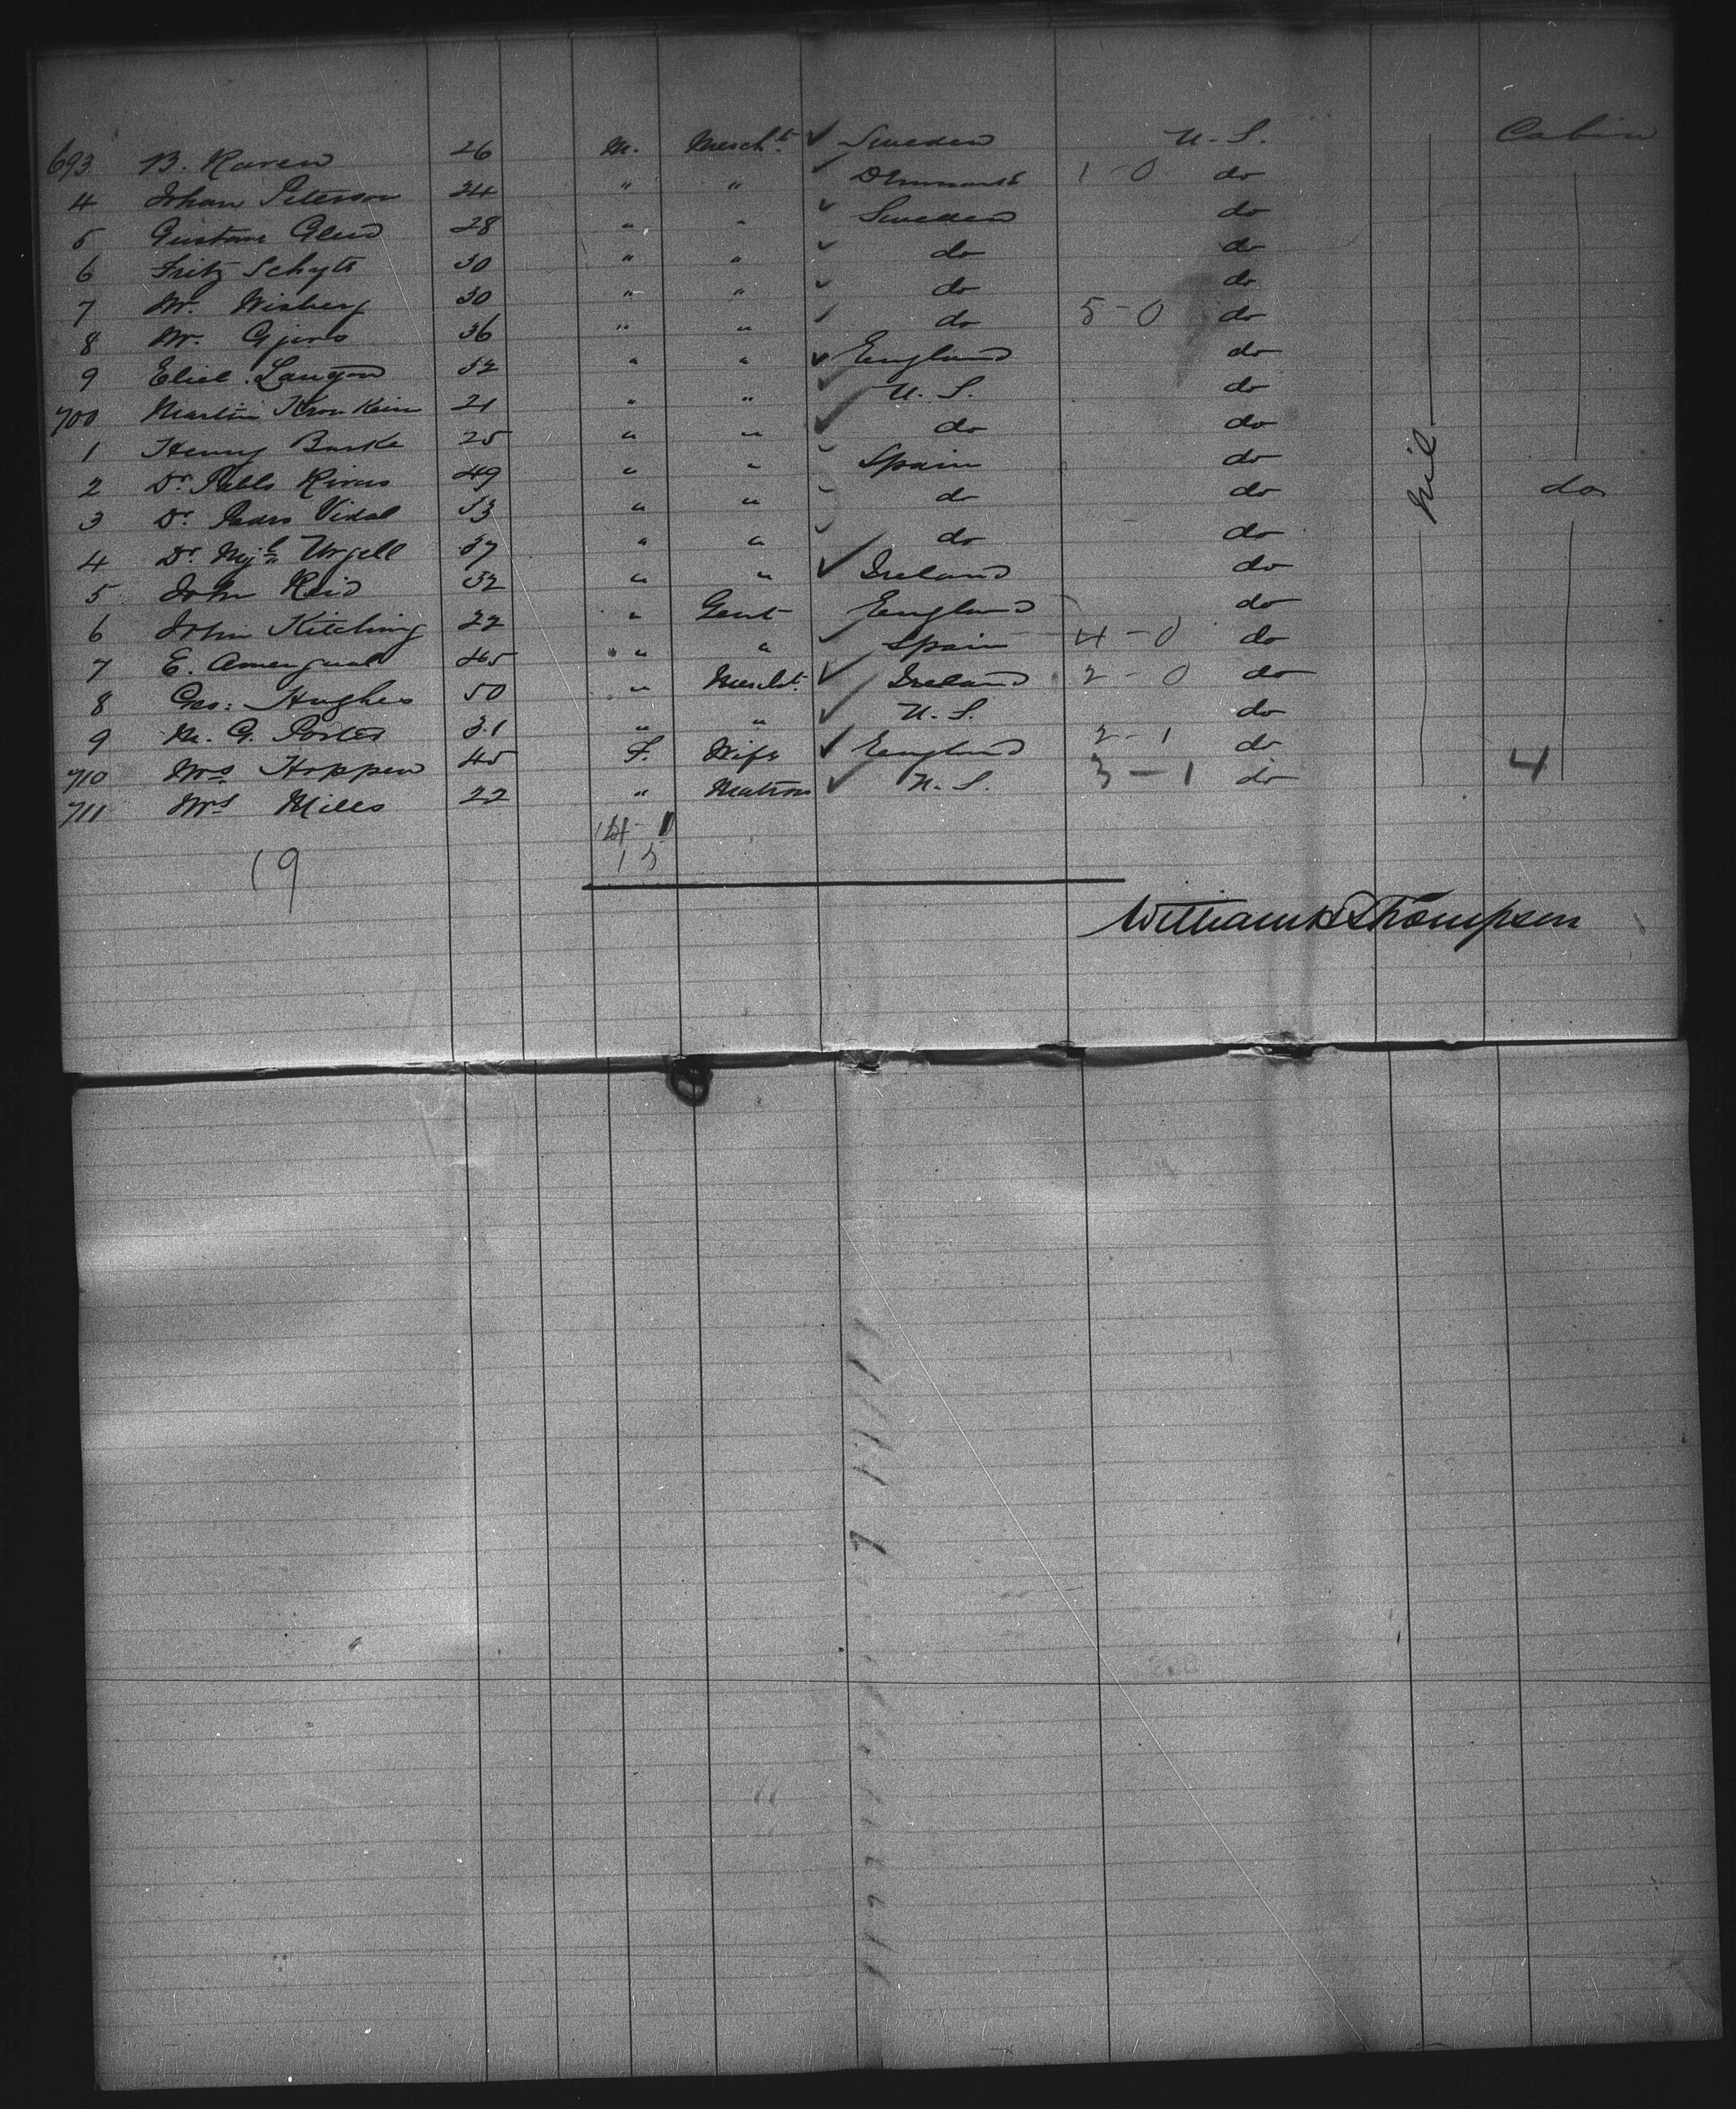 693 B. Raven 26 M. Mercht ✓ Sweden U.S. Cabin
4 Johan Peterson 24 " " ✓ Denmark 1-0 do
5 Gustave 28 " " ✓ Sweden do
6 Fritz 30 " " ✓ do do
7 Mr. Wisberg 30 " " ✓ do do
8 Mr. 36 " " ✓ do 5-0 do
9 " " ✓ England do
700 Martin 21 " " ✓ U.S. do
1 Henry Burke 25 " " ✓ do do
2 Dr. Rivas 49 " " ✓ Spain do nil do
3 Dr. Pedro Vidal 53 " " ✓ do do
4 Dr. Urgell 37 " " ✓ do do
5 John Reid 32 " " ✓ Ireland do
6 John Kitching 22 " Gent England do
7 E. Amengual 45 " " ✓ Spain 4-0 do
8 Geo: Hughes 50 " Mercht ✓ Ireland 2-0 do
9 M. G. Porter 31 " " ✓ U.S. do
710 Mrs Hoppen 45 F. Wife ✓ England 2-1 do
711 Mrs Mills 22 " Matron ✓ U.S. 3-1 do 4
14-1
19 15
William H Thompson